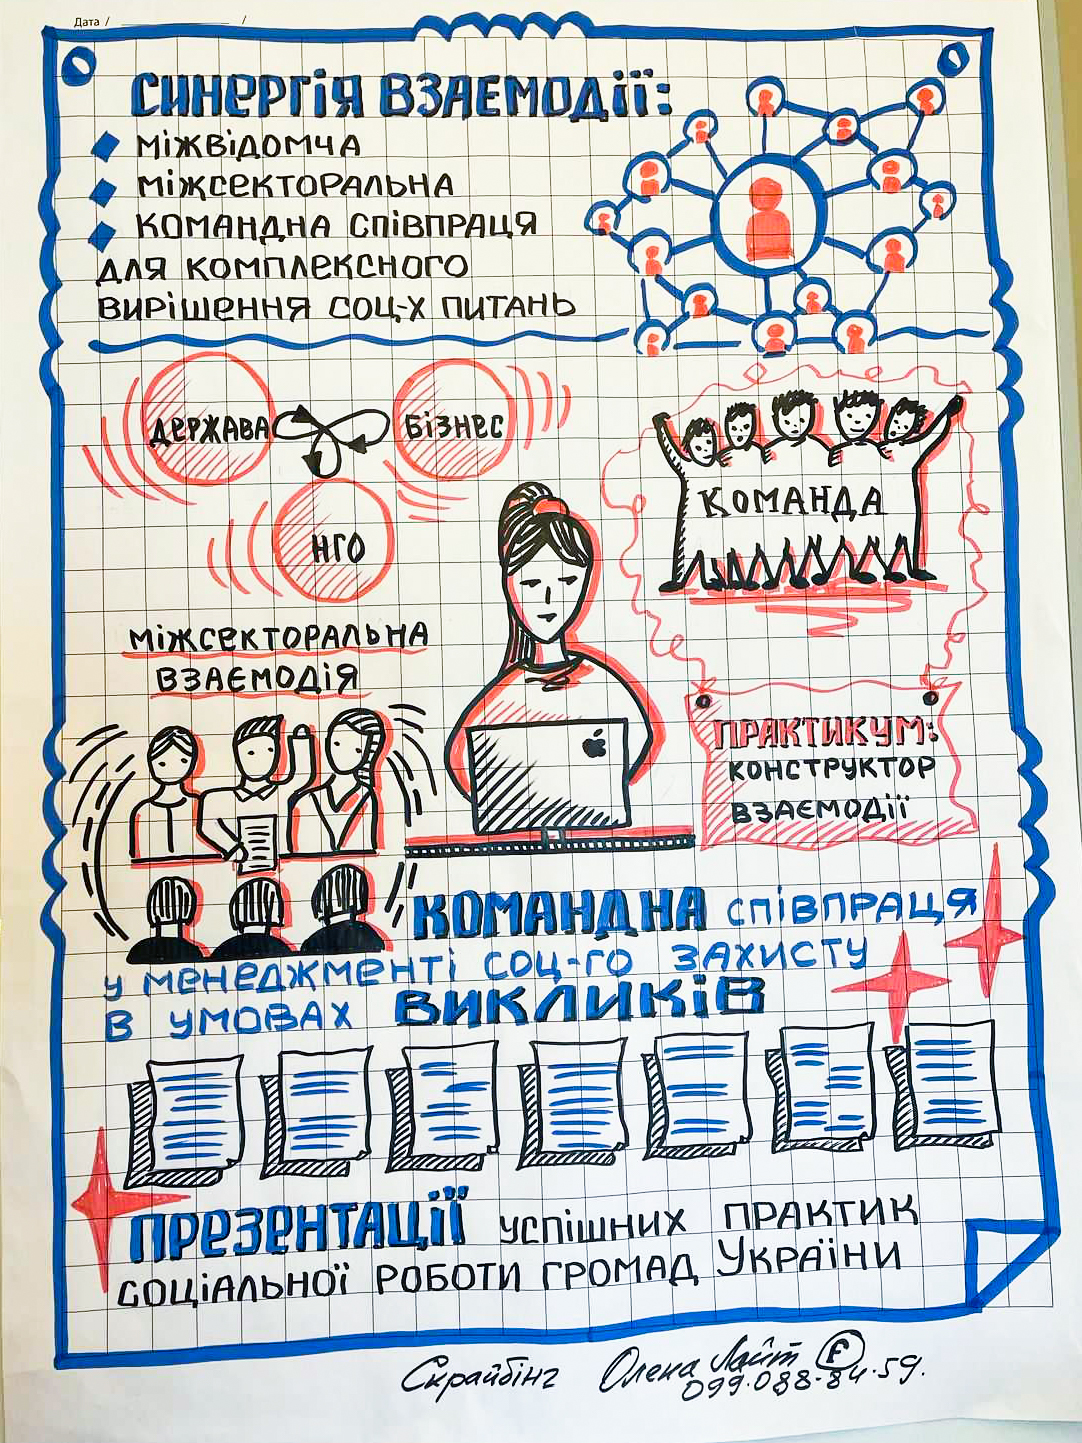 Дата / /
СИНЕРГІЯ ВЗАЄМОДІЇ:
МІЖВІДОМЧА
МІЖСЕКТОРАЛЬНА
КОМАНДНА СПІВПРАЦЯ
ДЛЯ КОМПЛЕКСНОГО
ВИРІШЕННЯ СОЦ-Х ПИТАНЬ
ДЕРЖАВА
БІЗНЕС
НГО
КОМАНДА
МІЖСЕКТОРАЛЬНА
ВЗАЄМОДІЯ
ПРАКТИКУМ:
КОНСТРУКТОР
ВЗАЄМОДІЇ
КОМАНДНА СПІВПРАЦЯ
У МЕНЕДЖМЕНТІ СОЦ-ГО ЗАХИСТУ
В УМОВАХ ВИКЛИКІВ
ПРЕЗЕНТАЦІЇ УСПІШНИХ ПРАКТИК
СОЦІАЛЬНОЇ РОБОТИ ГРОМАД УКРАЇНИ
Скрайбінг Олена Лайт F
099-088-84-59.